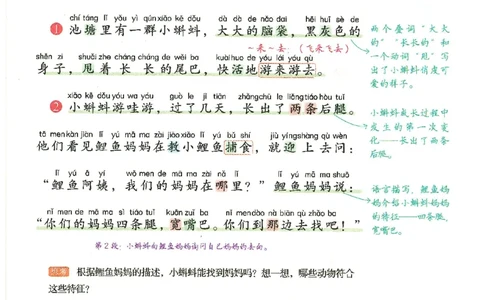 chí táng lǐ yǒu yì qún xiǎo kē dǒu dà dà de nǎo dai hēi huī sè de
① 池塘里有一群小蝌蚪，大大的脑袋，黑灰色的
～来～去（飞来飞去）
shēn zi shuǎi zhe cháng cháng de wěi ba kuài huo de yóu lái yóu qù
身子，甩着长长的尾巴，快活地游来游去。
两个叠词“大大
的”“长长的”和
一个动词“甩”写
出了小蝌蚪活泼可
爱的样子。
xiǎo kē dǒu yóu wa yóu guò le jǐ tiān zhǎng chū le liǎng tiáo hòu tuǐ
② 小蝌蚪游哇游，过了几天，长出了两条后腿。
tā men kàn jiàn lǐ yú mā ma zài jiāo xiǎo lǐ yú bǔ shí jiù yíng shàng qù wèn
他们看见鲤鱼妈妈在教小鲤鱼捕食，就迎上去问：
小蝌蚪成长过程中
发生的第一次变
化——长出了两条
后腿。
lǐ yú ā yí wǒ men de mā ma zài nǎ lǐ lǐ yú mā ma shuō
“鲤鱼阿姨，我们的妈妈在哪里？”鲤鱼妈妈说：
nǐ men de mā ma sì tiáo tuǐ kuān zuǐ ba nǐ men dào nà biān qù zhǎo ba
“你们的妈妈四条腿，宽嘴巴。你们到那边去找吧！”
语言描写，鲤鱼妈
妈介绍小蝌蚪妈妈
的特征——四条腿，
宽嘴巴。
第2段：小蝌蚪向鲤鱼妈妈询问自己妈妈的去向。
根据鲤鱼妈妈的描述，小蝌蚪能找到妈妈吗？想一想，哪些动物符合
这些特征？